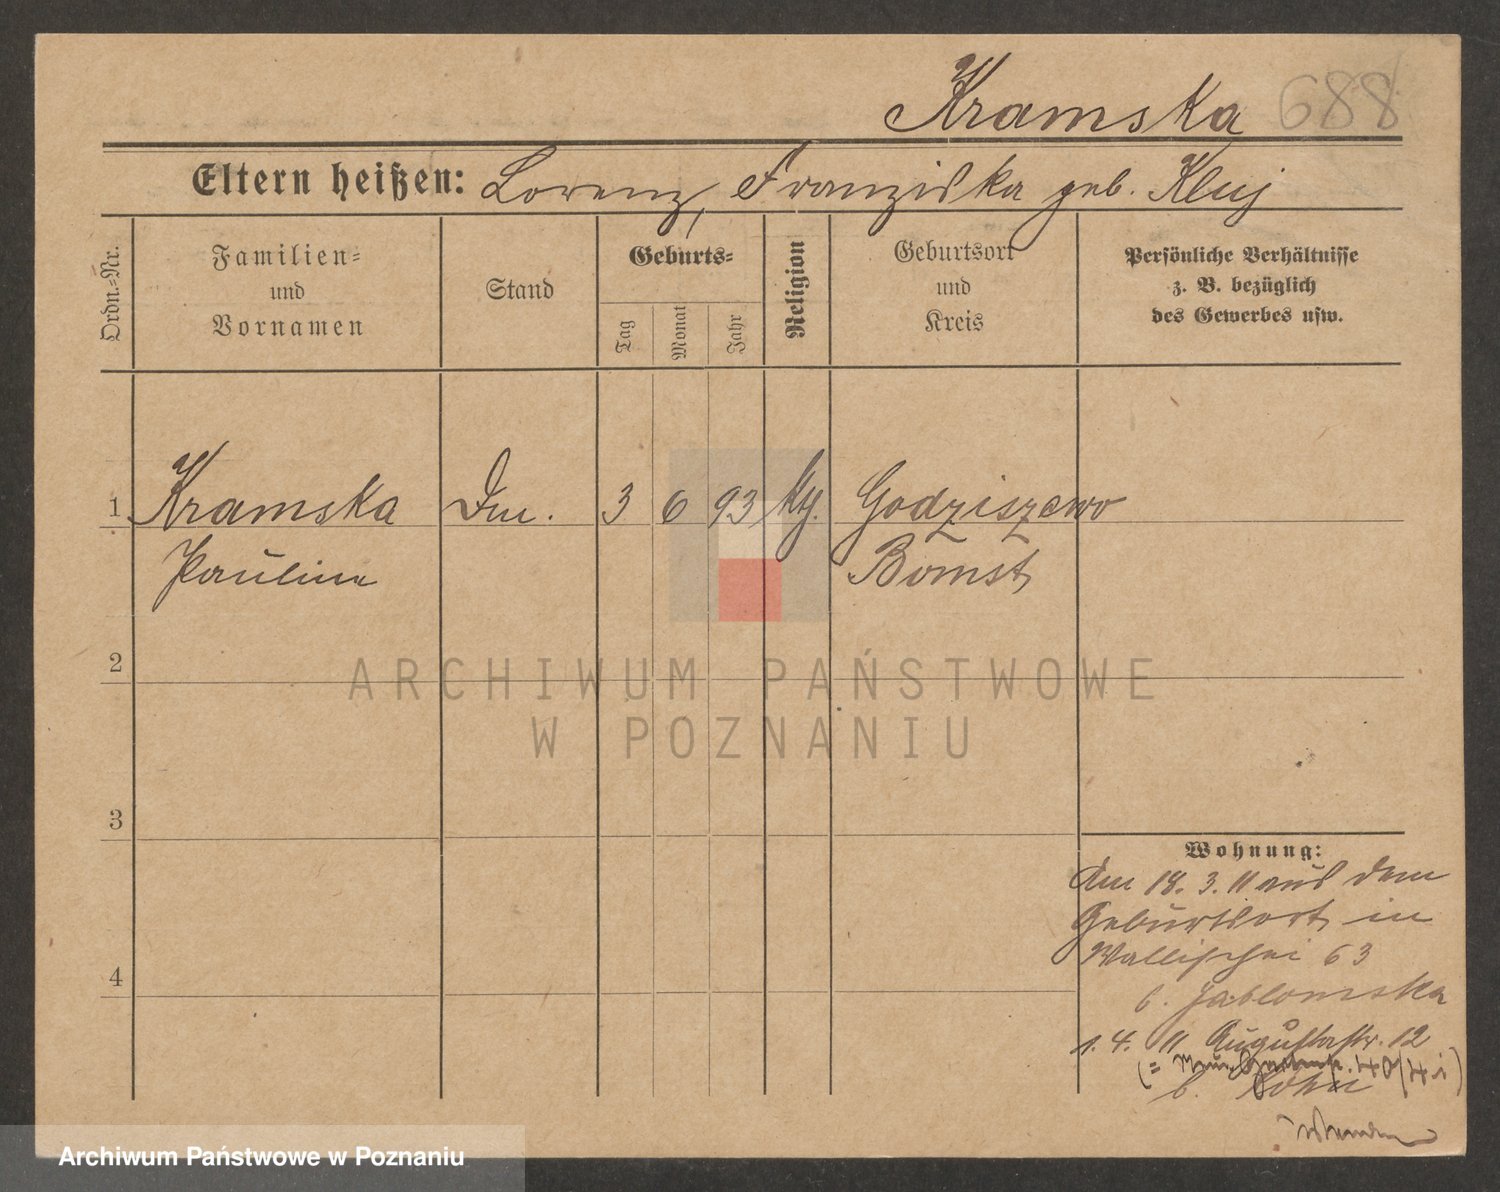 Kramska 688
Eltern heißen: Lorenz, Franziska geb. Kluj
Ordn.-Nr.
Familien-
und
Vornamen
Stand
Geburts-
Tag
Monat
Jahr
Religion
Geburtsort
und
Kreis
Persönliche Verhältnisse
z. B. bezüglich
des Gewerbes usw.
1 Kramska 3 6 93 Godziszewo
Pauline Bomst
2
3
4
Wohnung:
Am 18. 3. 11 aus dem
Geburtsort in
Wallischei 63
b. Jablomska
1. 4. 11 Augustastr. 12
b.
ARCHIWUM PAŃSTWOWE
W POZNANIU
Archiwum Państwowe w Poznaniu